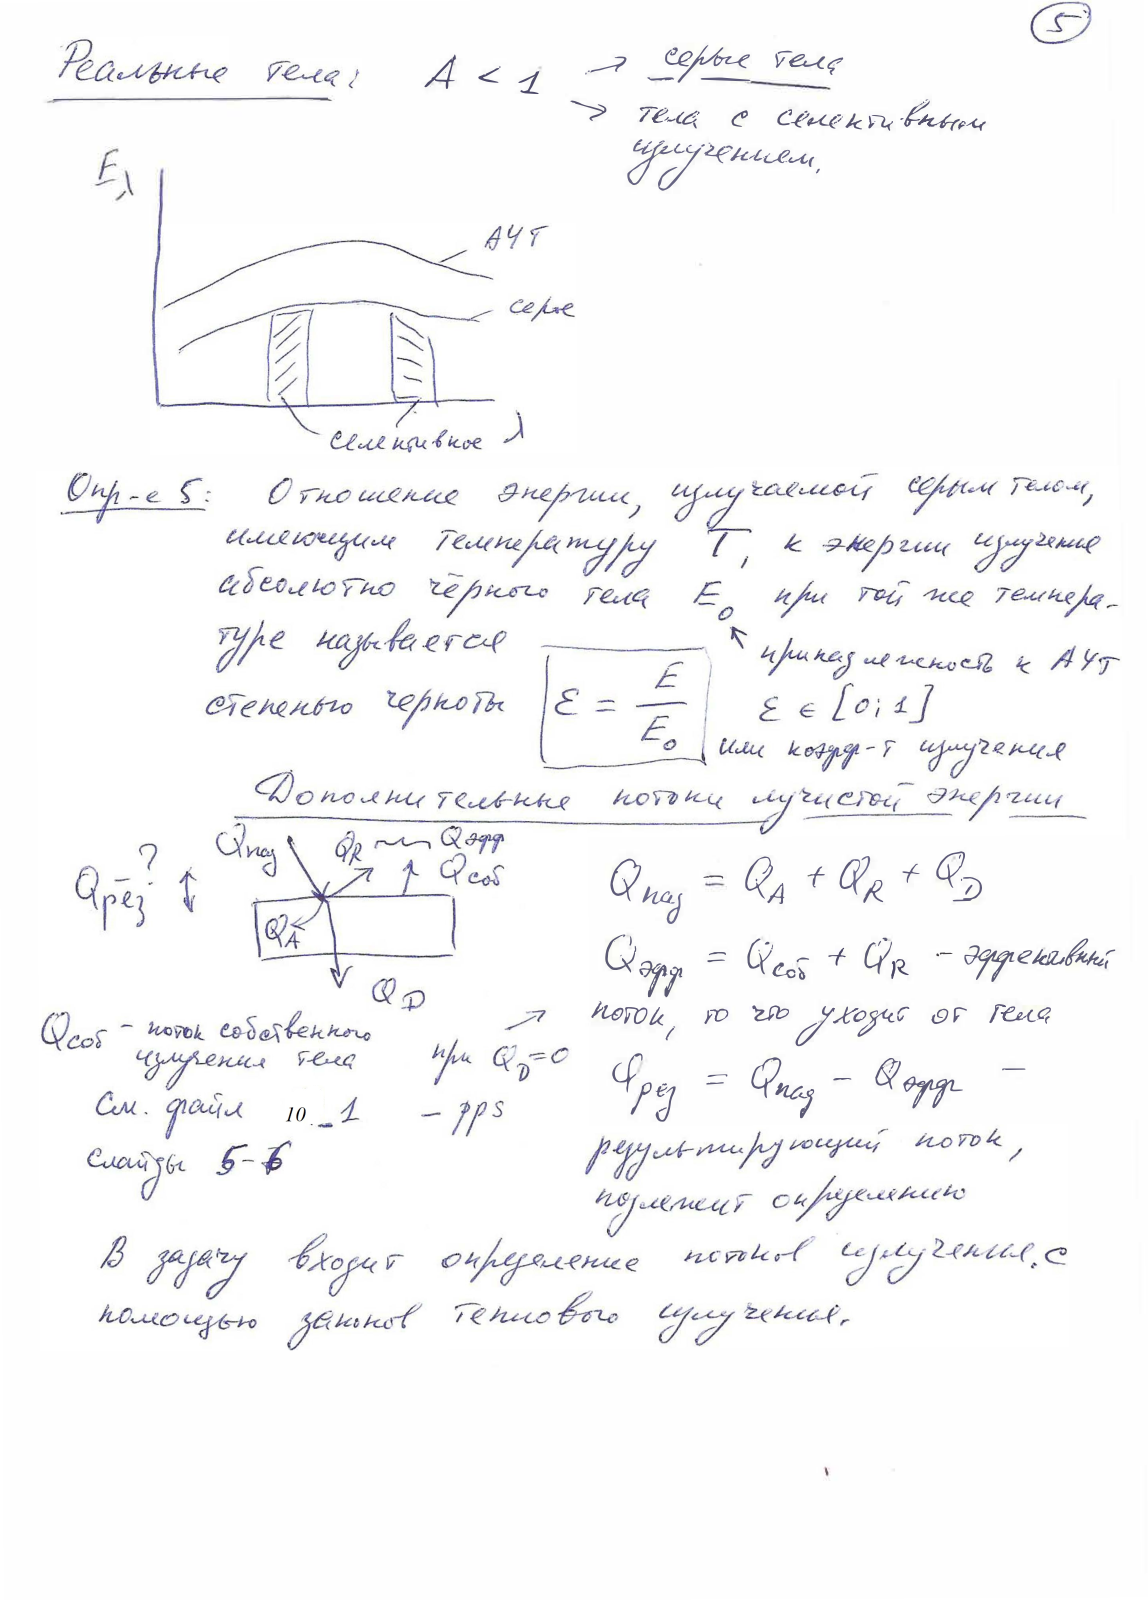 5
Реальные тела: A < 1 → серые тела
→ тела с селективным
излучением.
Eλ
АЧТ
серое
селективное λ
Опр-е 5: Отношение энергии, излучаемой серым телом,
имеющим температуру T, к энергии излучения
абсолютно чёрного тела E₀ при той же темпера-
туре называется
принадлежность к АЧТ
степенью черноты ε = E/E₀ ε ∈ [0; 1]
или коэфф-т излучения
Дополнительные потоки лучистой энергии
Qпад QR Qэфф
Qсоб
Qрез ?
QA
QD
Qпад = QA + QR + QD
Qэфф = Qсоб + QR - эффективный
поток, то что уходит от тела
Qсоб - поток собственного
излучения тела
при QD = 0
Qрез = Qпад - Qэфф -
результирующий поток,
подлежит определению
См. файл 10_1 - pps
слайды 5-6
В задачу входит определение потоков излучения с
помощью законов теплового излучения.